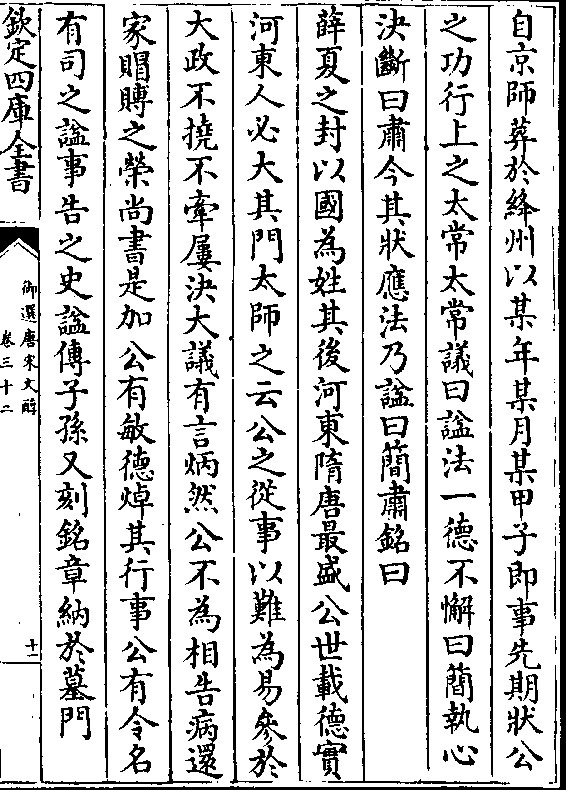 自京師葬於絳州以某年某月某甲子即事先期狀公
之功行上之太常太常議曰諡法一德不懈曰簡執心
決斷曰肅今其狀應法乃諡曰簡肅銘曰
薛夏之封以國為姓其後河東隋唐最盛公世載德實
河東人必大其門太師之云公之從事以難為易參於
大政不撓不牽屢決大議有言炳然公不為相告病還
家賵賻之榮尚書是加公有敏德焯其行事公有令名
有司之諡事告之史諡傳子孫又刻銘章納於墓門
欽定四庫全書
御選唐宋文醇
卷三十二
十一